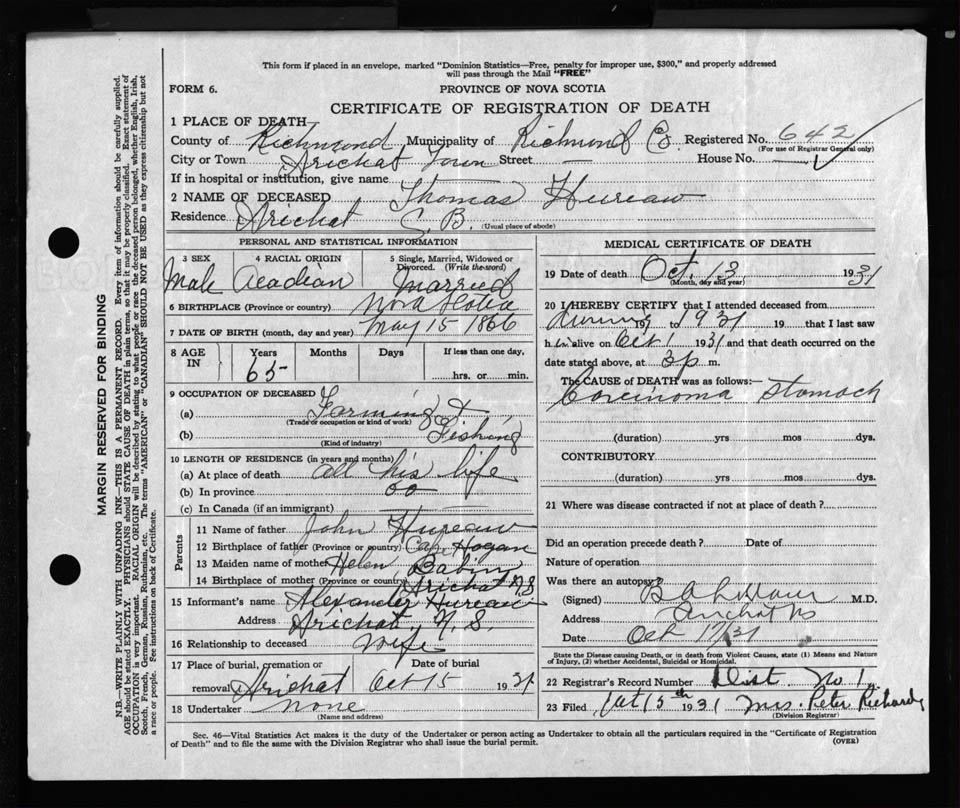 This form if placed in an envelope, marked "Dominion Statistics—Free, penalty for improper use, $300," and properly addressed
will pass through the Mail "FREE"
FORM 6.
PROVINCE OF NOVA SCOTIA
CERTIFICATE OF REGISTRATION OF DEATH
1 PLACE OF DEATH
County of Richmond Municipality of Richmond Co Registered No. 642
(For use of Registrar General only)
City or Town Arichat Town Street — House No.
If in hospital or institution, give name
2 NAME OF DECEASED Thomas Hureau
Residence Arichat C. B. (Usual place of abode)
PERSONAL AND STATISTICAL INFORMATION
3 SEX 4 RACIAL ORIGIN 5 Single, Married, Widowed or
Divorced. (Write the word)
Male Acadian Married
6 BIRTHPLACE (Province or country) Nova Scotia
7 DATE OF BIRTH (month, day and year) May 15 1866
8 AGE IN Years Months Days If less than one day,
65 hrs. or min.
9 OCCUPATION OF DECEASED
(a) Farming &
(Trade or occupation or kind of work)
(b) Fishing
(Kind of industry)
10 LENGTH OF RESIDENCE (in years and months)
(a) At place of death all his life
(b) In province
(c) In Canada (if an immigrant)
Parents
11 Name of father John Hureau
12 Birthplace of father (Province or country) Cap Hogan
13 Maiden name of mother Helen Babin
14 Birthplace of mother (Province or country) Arichat N S
15 Informant's name Alexander Hureau
Address Arichat, N. S.
16 Relationship to deceased Wife
17 Place of burial, cremation or Date of burial
removal Arichat Oct 15 1931
18 Undertaker none
(Name and address)
MEDICAL CERTIFICATE OF DEATH
19 Date of death Oct. 13 1931
(Month, day and year)
20 I HEREBY CERTIFY that I attended deceased from
During 19 to 1931 19 that I last saw
h im alive on Oct 1 1931 and that death occurred on the
date stated above, at 3 p m.
The CAUSE of DEATH was as follows:
Carcinoma Stomach
(duration) yrs mos dys.
CONTRIBUTORY
(duration) yrs mos dys.
21 Where was disease contracted if not at place of death?
Did an operation precede death? Date of
Nature of operation
Was there an autopsy
(Signed) M.D.
Address Arichat NS
Date Oct 17/31
State the Disease causing Death, or in death from Violent Causes, state (1) Means and Nature
of Injury, (2) whether Accidental, Suicidal or Homicidal.
22 Registrar's Record Number Dist No 1
23 Filed Oct 15th 1931 Mrs. Peter Richard
(Division Registrar)
Sec. 46—Vital Statistics Act makes it the duty of the Undertaker or person acting as Undertaker to obtain all the particulars required in the "Certificate of Registration
of Death" and to file the same with the Division Registrar who shall issue the burial permit. (OVER)
MARGIN RESERVED FOR BINDING
N.B.—WRITE PLAINLY WITH UNFADING INK—THIS IS A PERMANENT RECORD. Every item of information should be carefully supplied.
AGE should be stated EXACTLY. PHYSICIANS should STATE CAUSE OF DEATH in plain terms, so that it may be properly classified. Exact statement of
OCCUPATION is very important. RACIAL ORIGIN will be described by stating to what people or race the deceased person belonged, whether English, Irish,
Scotch, French, German, Russian, Ruthenian, etc. The terms "AMERICAN" or "CANADIAN" SHOULD NOT BE USED as they express citizenship but not
a race or people. See instructions on back of Certificate.